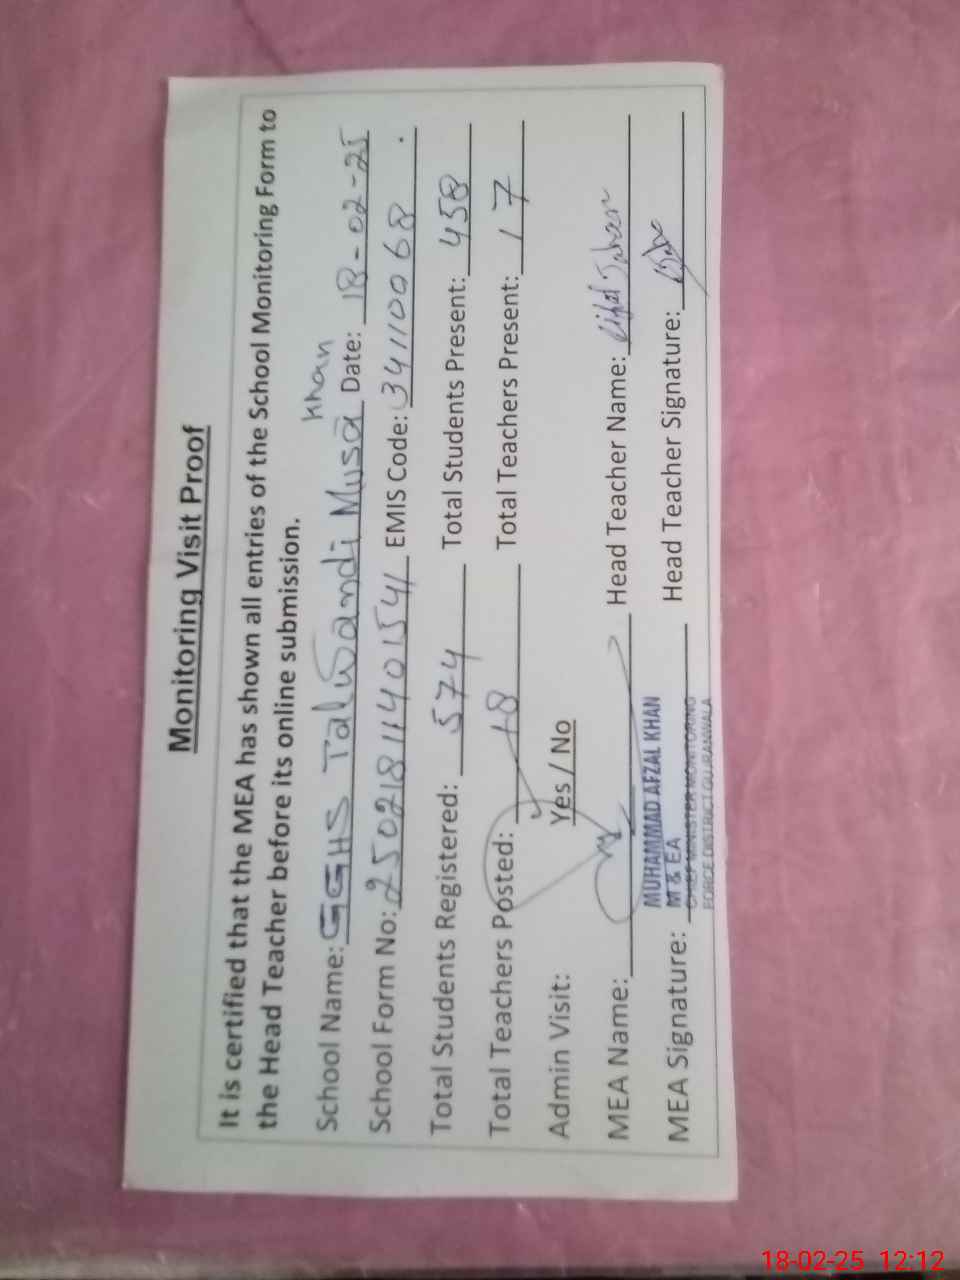 Monitoring Visit Proof
It is certified that the MEA has shown all entries of the School Monitoring Form to
the Head Teacher before its online submission.
School Name: GGHS Talwandi Musa Khan Date: 18-02-25
School Form No: 25021811401541 EMIS Code: 34110068
Total Students Registered: 574 Total Students Present: 458
Total Teachers Posted: 18 Total Teachers Present: 17
Admin Visit: Yes / No
MEA Name: Head Teacher Name:
MUHAMMAD AFZAL KHAN
MEA Signature: M & EA Head Teacher Signature:
CHIEF MINISTER MONITORING
FORCE DISTRICT GUJRANWALA
18-02-25 12:12